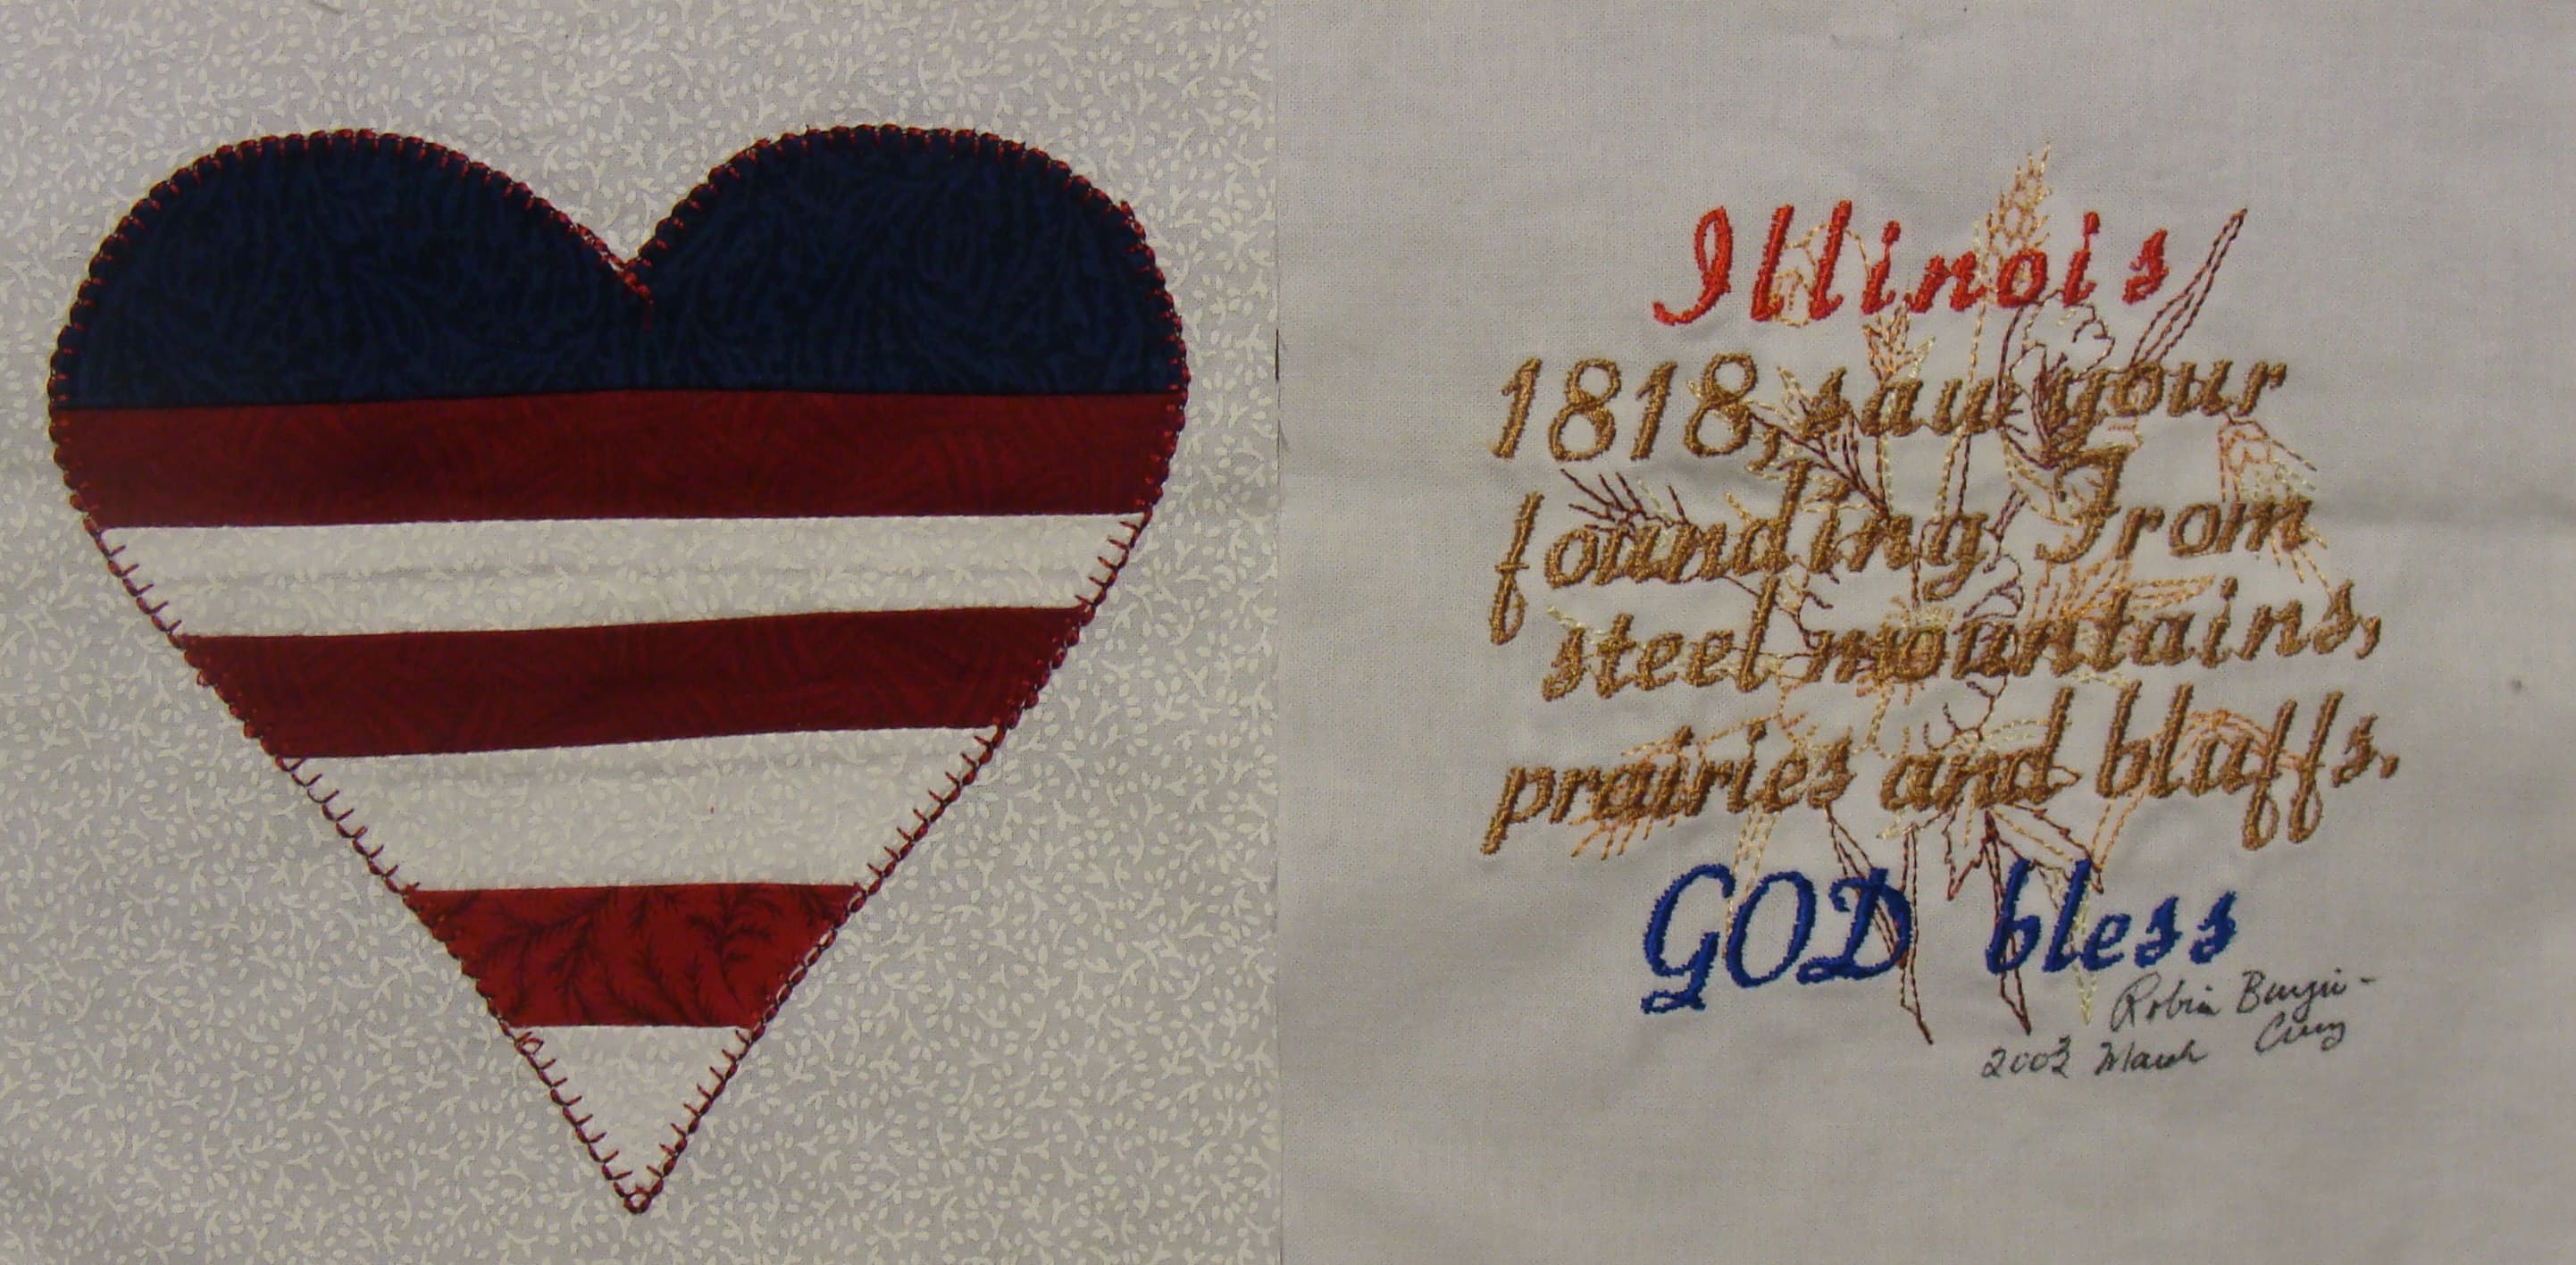 Illinois
1818, saw your
founding From
steel mountains,
prairies and bluffs.
GOD bless
Robin
2003 March